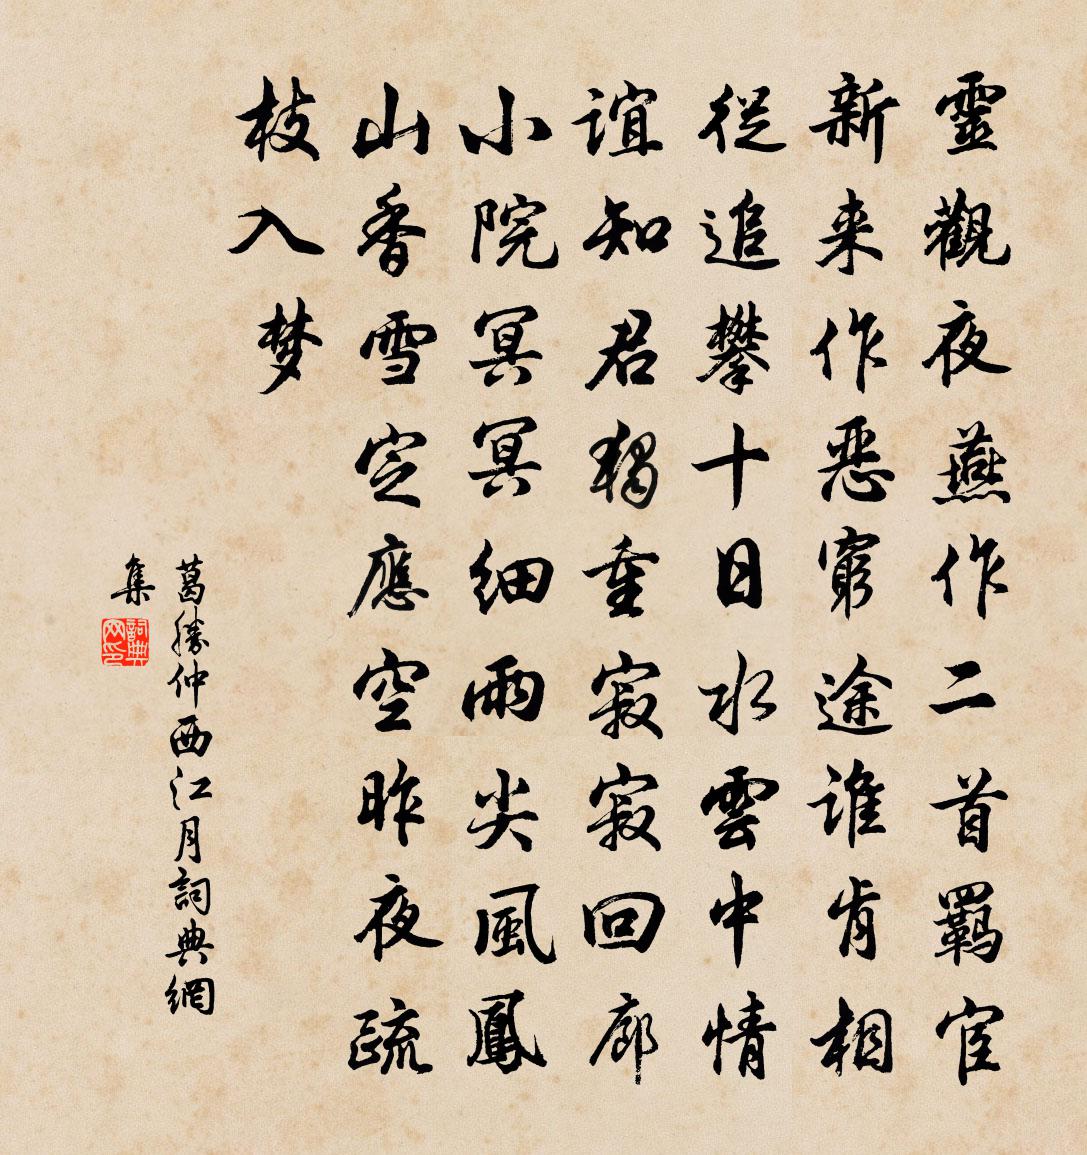 靈觀夜燕作二首羈宦
新来作惡窮途誰肯相
從追攀十日水雲中情
誼知君獨重寂寂回廊
小院冥冥細雨尖風鳳
山香雪定應空昨夜疏
枝入梦
葛勝仲西江月詞典網
集
詞典网印